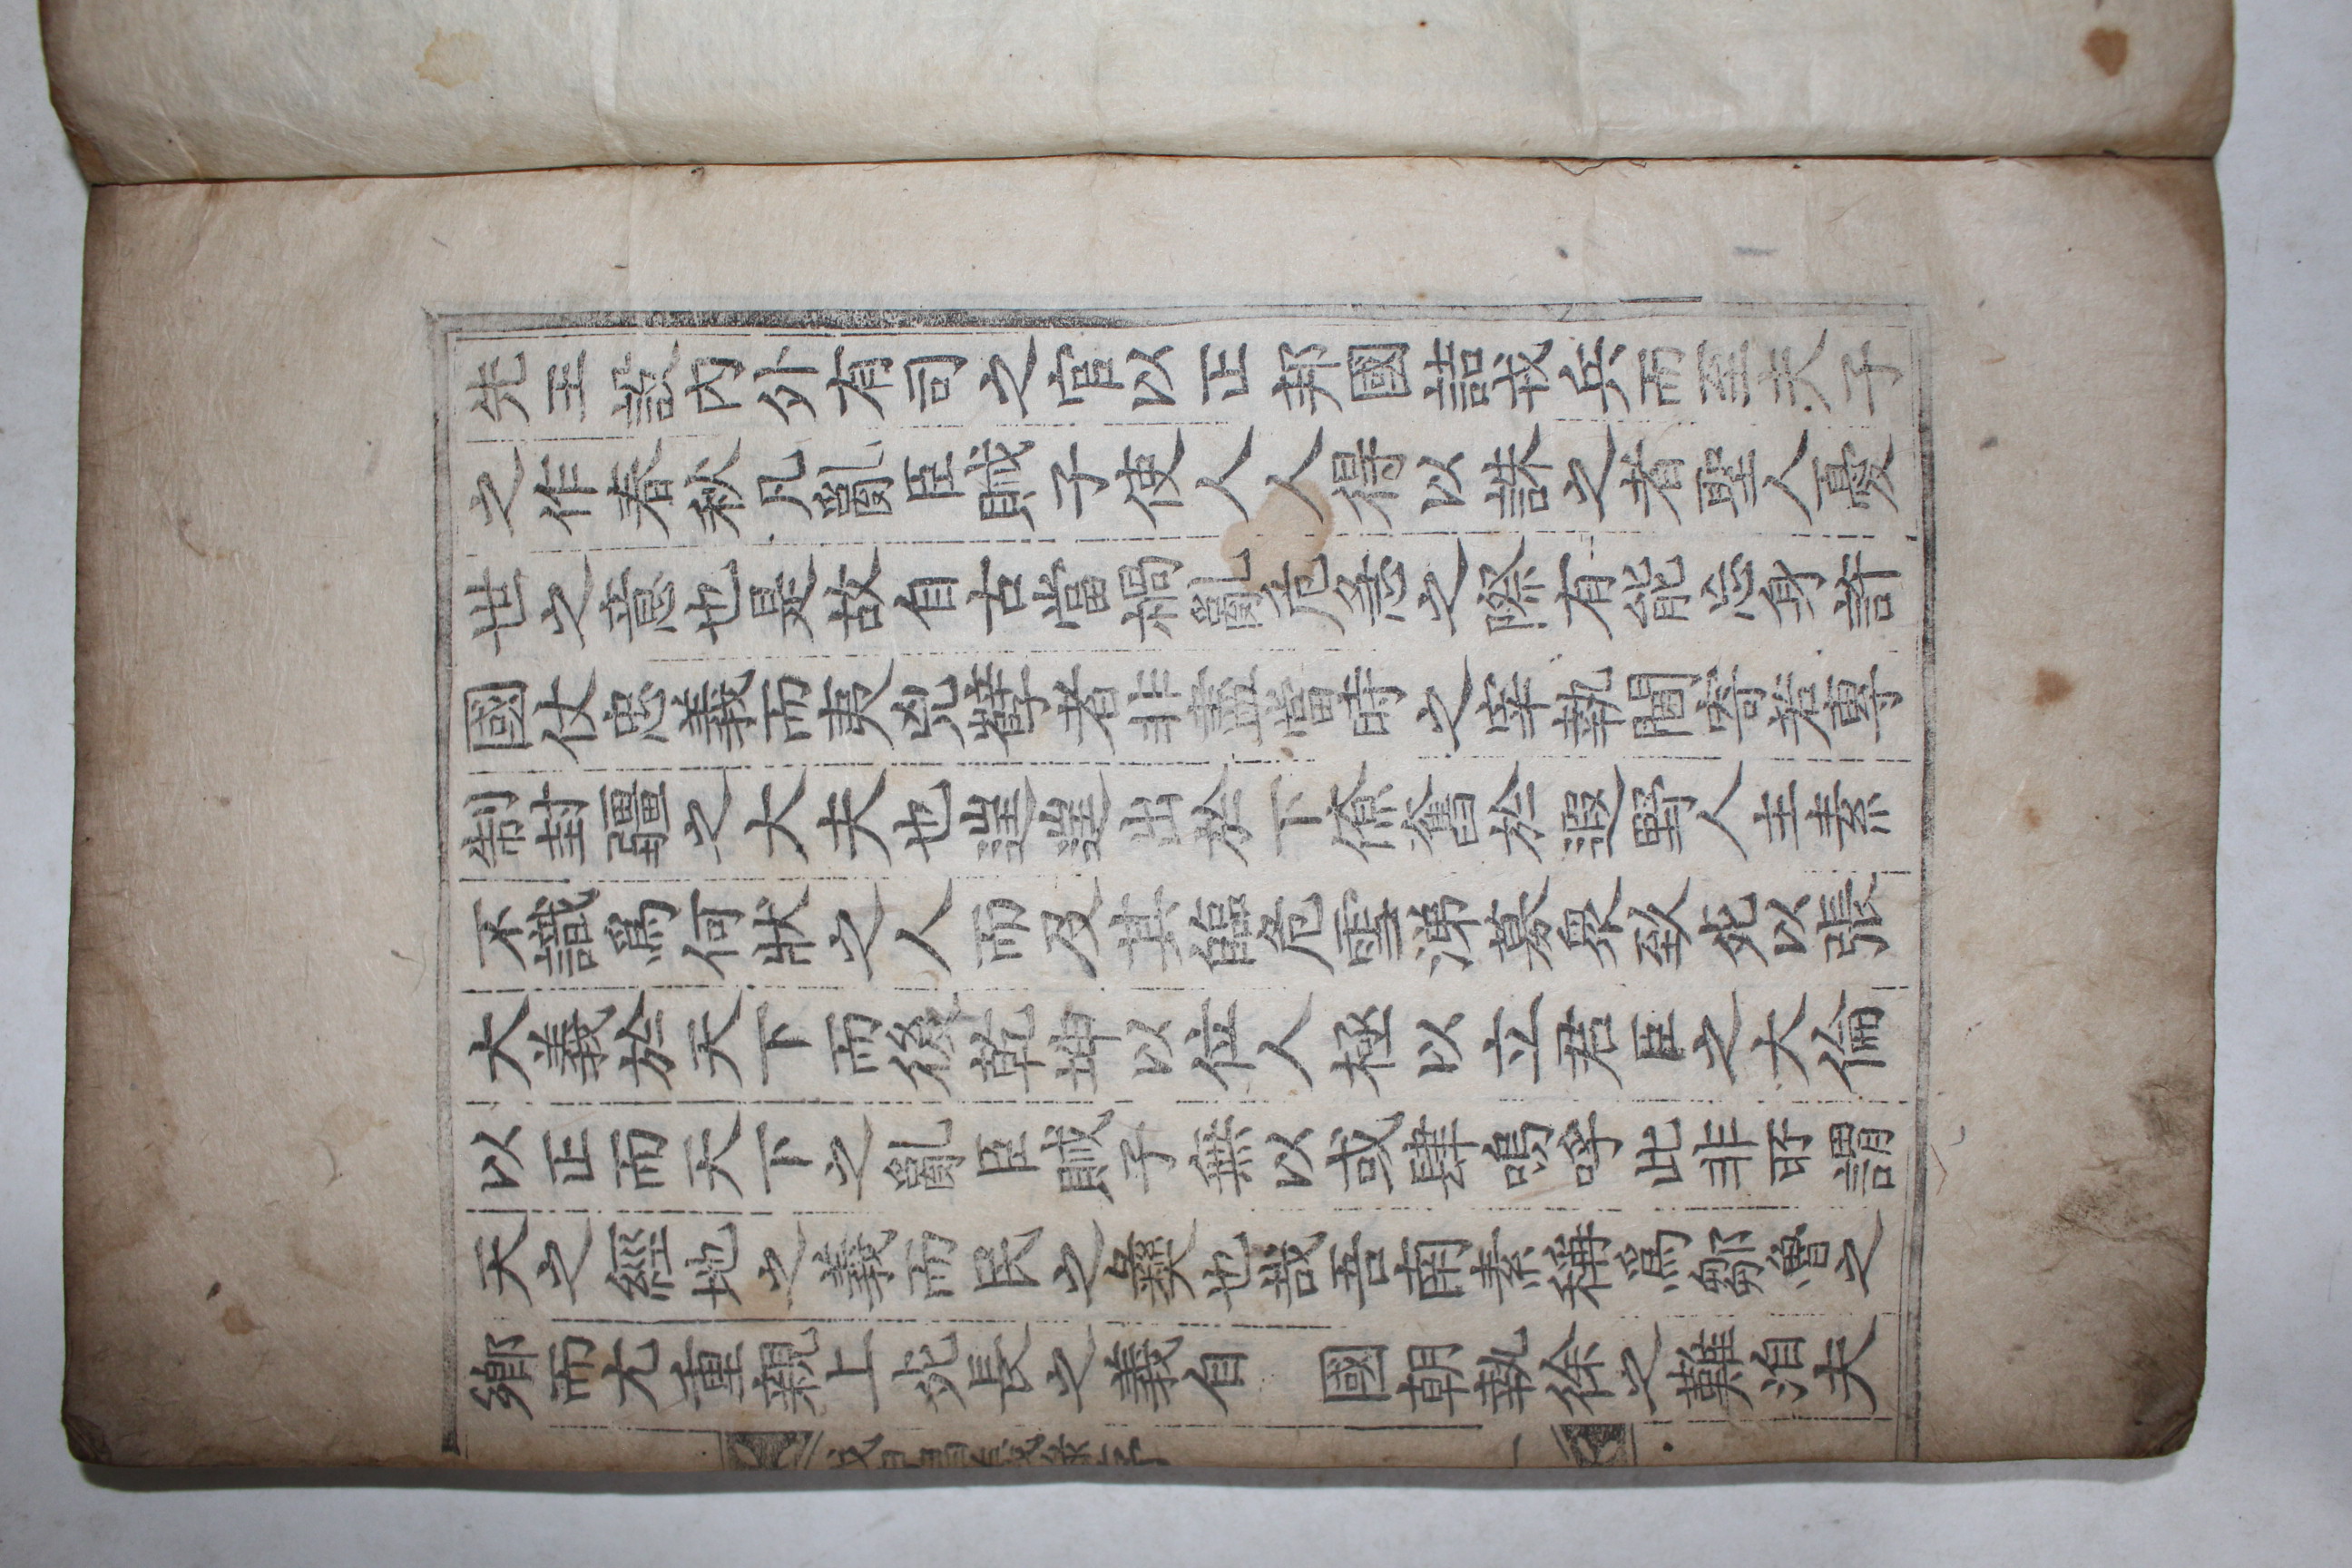 先王設內外有司之官以正邦國詰戎兵而至夫子
之作春秋凡亂臣賊子使人人得以誅之者聖人憂
世之意也是故自古當禍亂危急之際有能忘身許
國仗忠義而夷兇孽者非盡當時之宰執閫寄若專
制封疆之大夫也出於下僚奮於遐野人主素
不識爲何狀之人而及其臨危雪涕募衆致死以張
大義於天下而後乾坤以位人極以立君臣之大倫
以正而天下之亂臣賊子無以或肆嗚呼此非所謂
天之經地之義而民之彝也哉吾南素稱爲鄒魯之
鄉而尤重親上死長之義自 國朝執徐之難洎夫